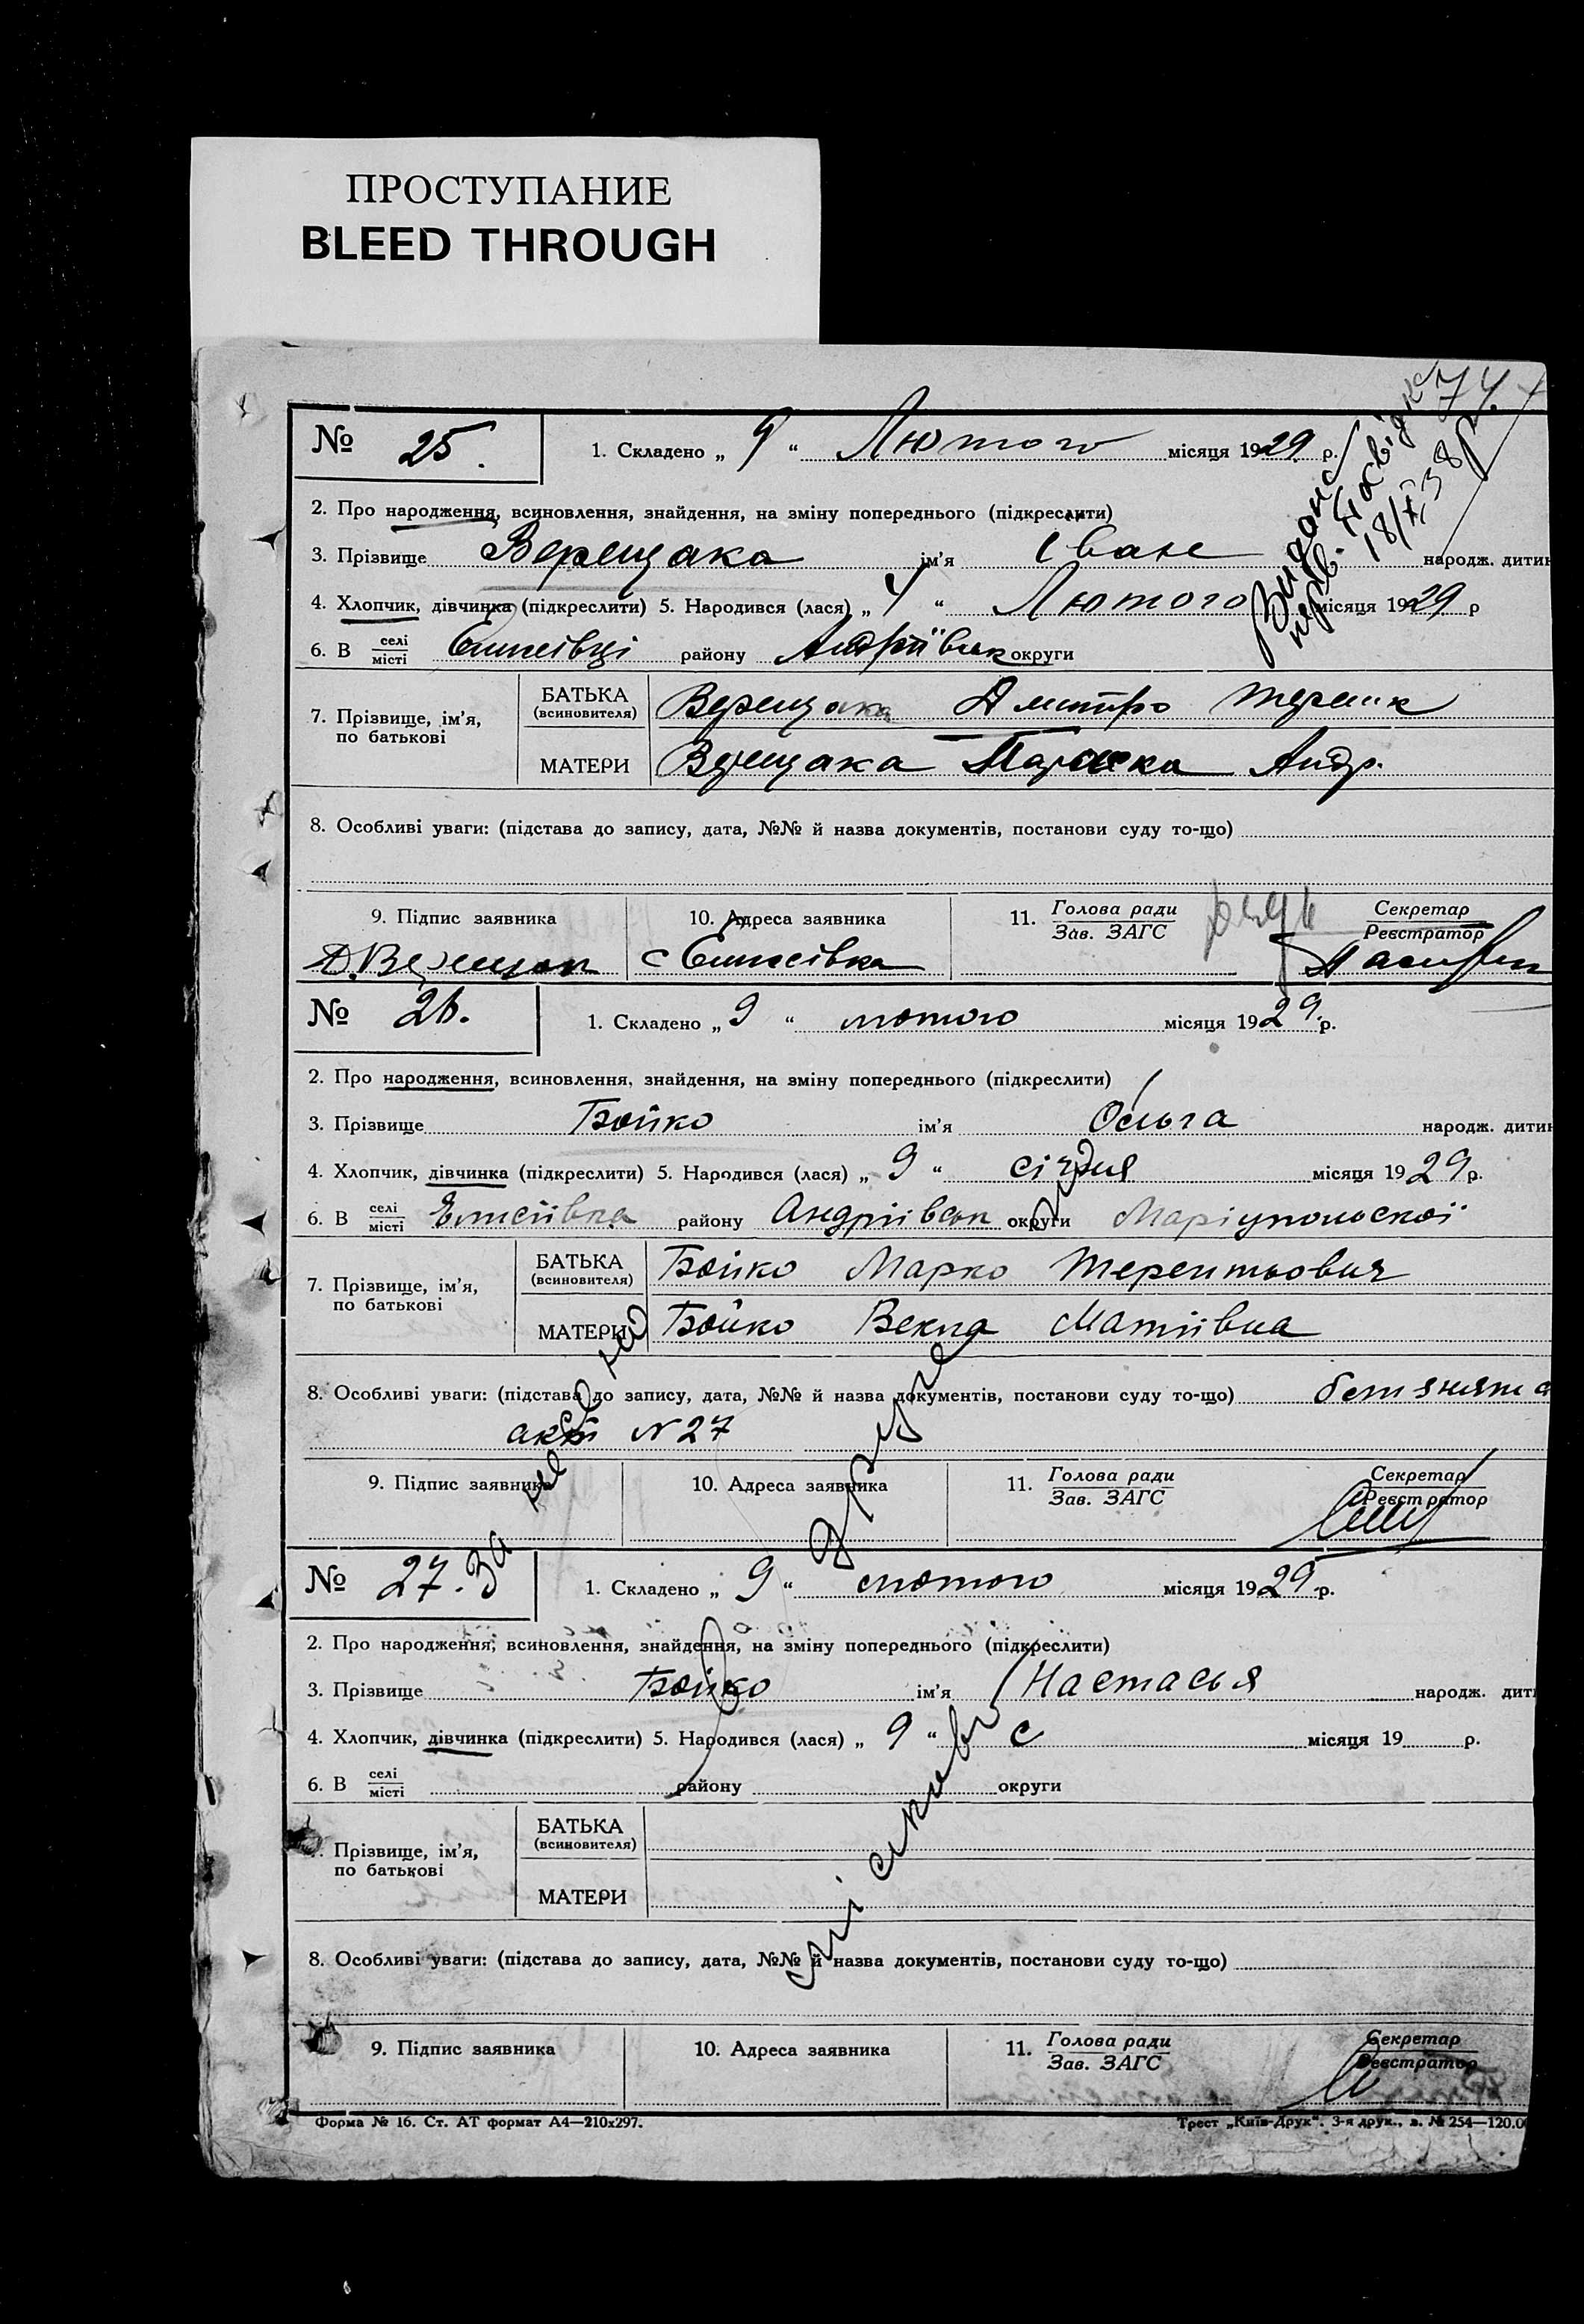 ПРОСТУПАНИЕ
BLEED THROUGH
74.
Видано
18/X 38 р
№ 25. 1. Складено „ 9 “ Лютого місяця 1929 р.
2. Про народження, всиновлення, знайдення, на зміну попереднього (підкреслити)
3. Прізвище Верещака ім’я Іван народж. дитин
4. Хлопчик, дівчинка (підкреслити) 5. Народився (лася) „ 4 “ Лютого місяця 1929 р
6. В селі/місті Єлисівці району Андріївськ округи
7. Прізвище, ім’я, по батькові
БАТЬКА (всиновителя) Верещака Дмитро
МАТЕРИ Верещака Параска Андр.
8. Особливі уваги: (підстава до запису, дата, №№ й назва документів, постанови суду то-що)
9. Підпис заявника 10. Адреса заявника 11. Голова ради/Зав. ЗАГС Секретар/Реєстратор
Д. Верещак с Єлисівка
№ 26. 1. Складено „ 9 “ лютого місяця 1929 р.
2. Про народження, всиновлення, знайдення, на зміну попереднього (підкреслити)
3. Прізвище Бойко ім’я Ольга народж. дитин
4. Хлопчик, дівчинка (підкреслити) 5. Народився (лася) „ 9 “ січня місяця 1929 р.
6. В селі/місті Елисіівка району Андріівськ округи Маріупольскої
7. Прізвище, ім’я, по батькові
БАТЬКА (всиновителя) Бойко Марко Терентьович
МАТЕРИ Бойко Векла Матіівна
8. Особливі уваги: (підстава до запису, дата, №№ й назва документів, постанови суду то-що)
акт N 27
9. Підпис заявника 10. Адреса заявника 11. Голова ради/Зав. ЗАГС Секретар/Реєстратор
№ 27. 1. Складено „ 9 “ лютого місяця 1929 р.
2. Про народження, всиновлення, знайдення, на зміну попереднього (підкреслити)
3. Прізвище Бойко ім’я Настасья народж. дити
4. Хлопчик, дівчинка (підкреслити) 5. Народився (лася) „ 9 “ с місяця 19 р.
6. В селі/місті району округи
7. Прізвище, ім’я, по батькові
БАТЬКА (всиновителя)
МАТЕРИ
8. Особливі уваги: (підстава до запису, дата, №№ й назва документів, постанови суду то-що)
9. Підпис заявника 10. Адреса заявника 11. Голова ради/Зав. ЗАГС Секретар/Реєстратор
Форма № 16. Ст. АТ формат А4—210х297. Трест „Київ-Друк“. 3-я друк., з. № 254—120.00